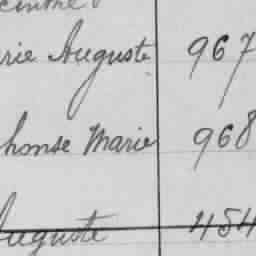 rie Auguste 967
honse Marie 968
Auguste 454